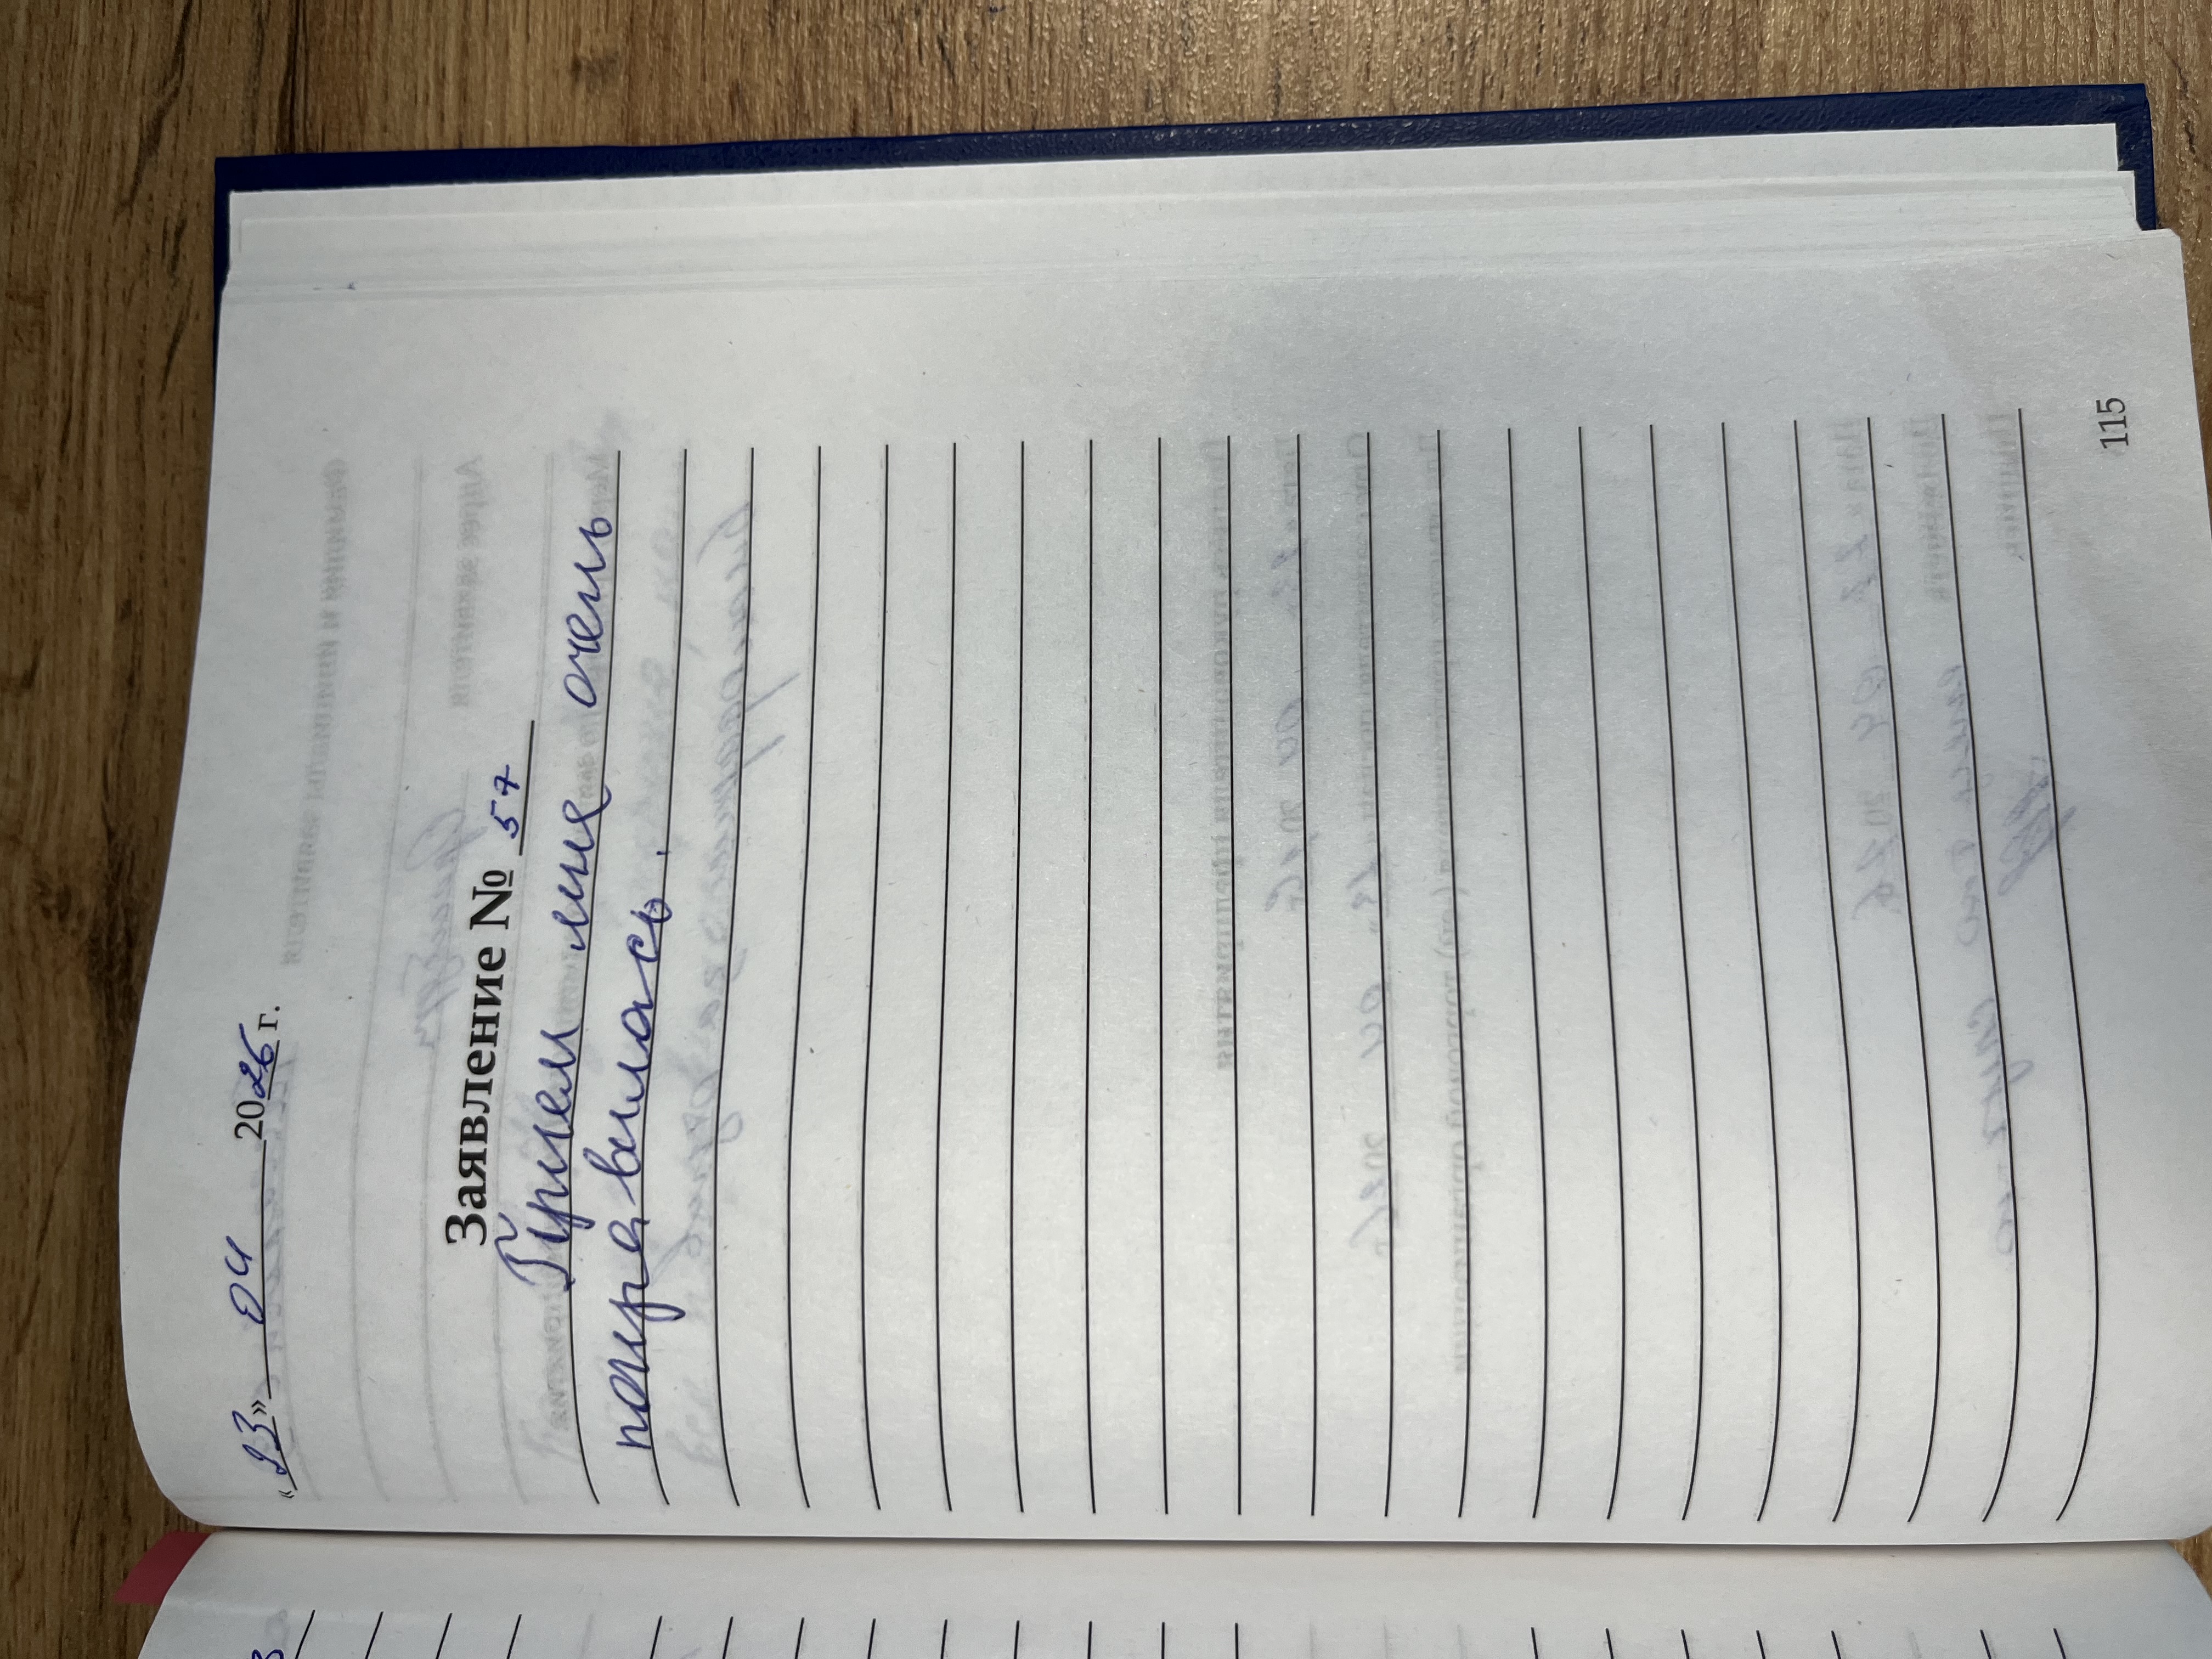 «23» 04 2026 г.
Заявление № 57
Прием мне очень
понравилось.
115